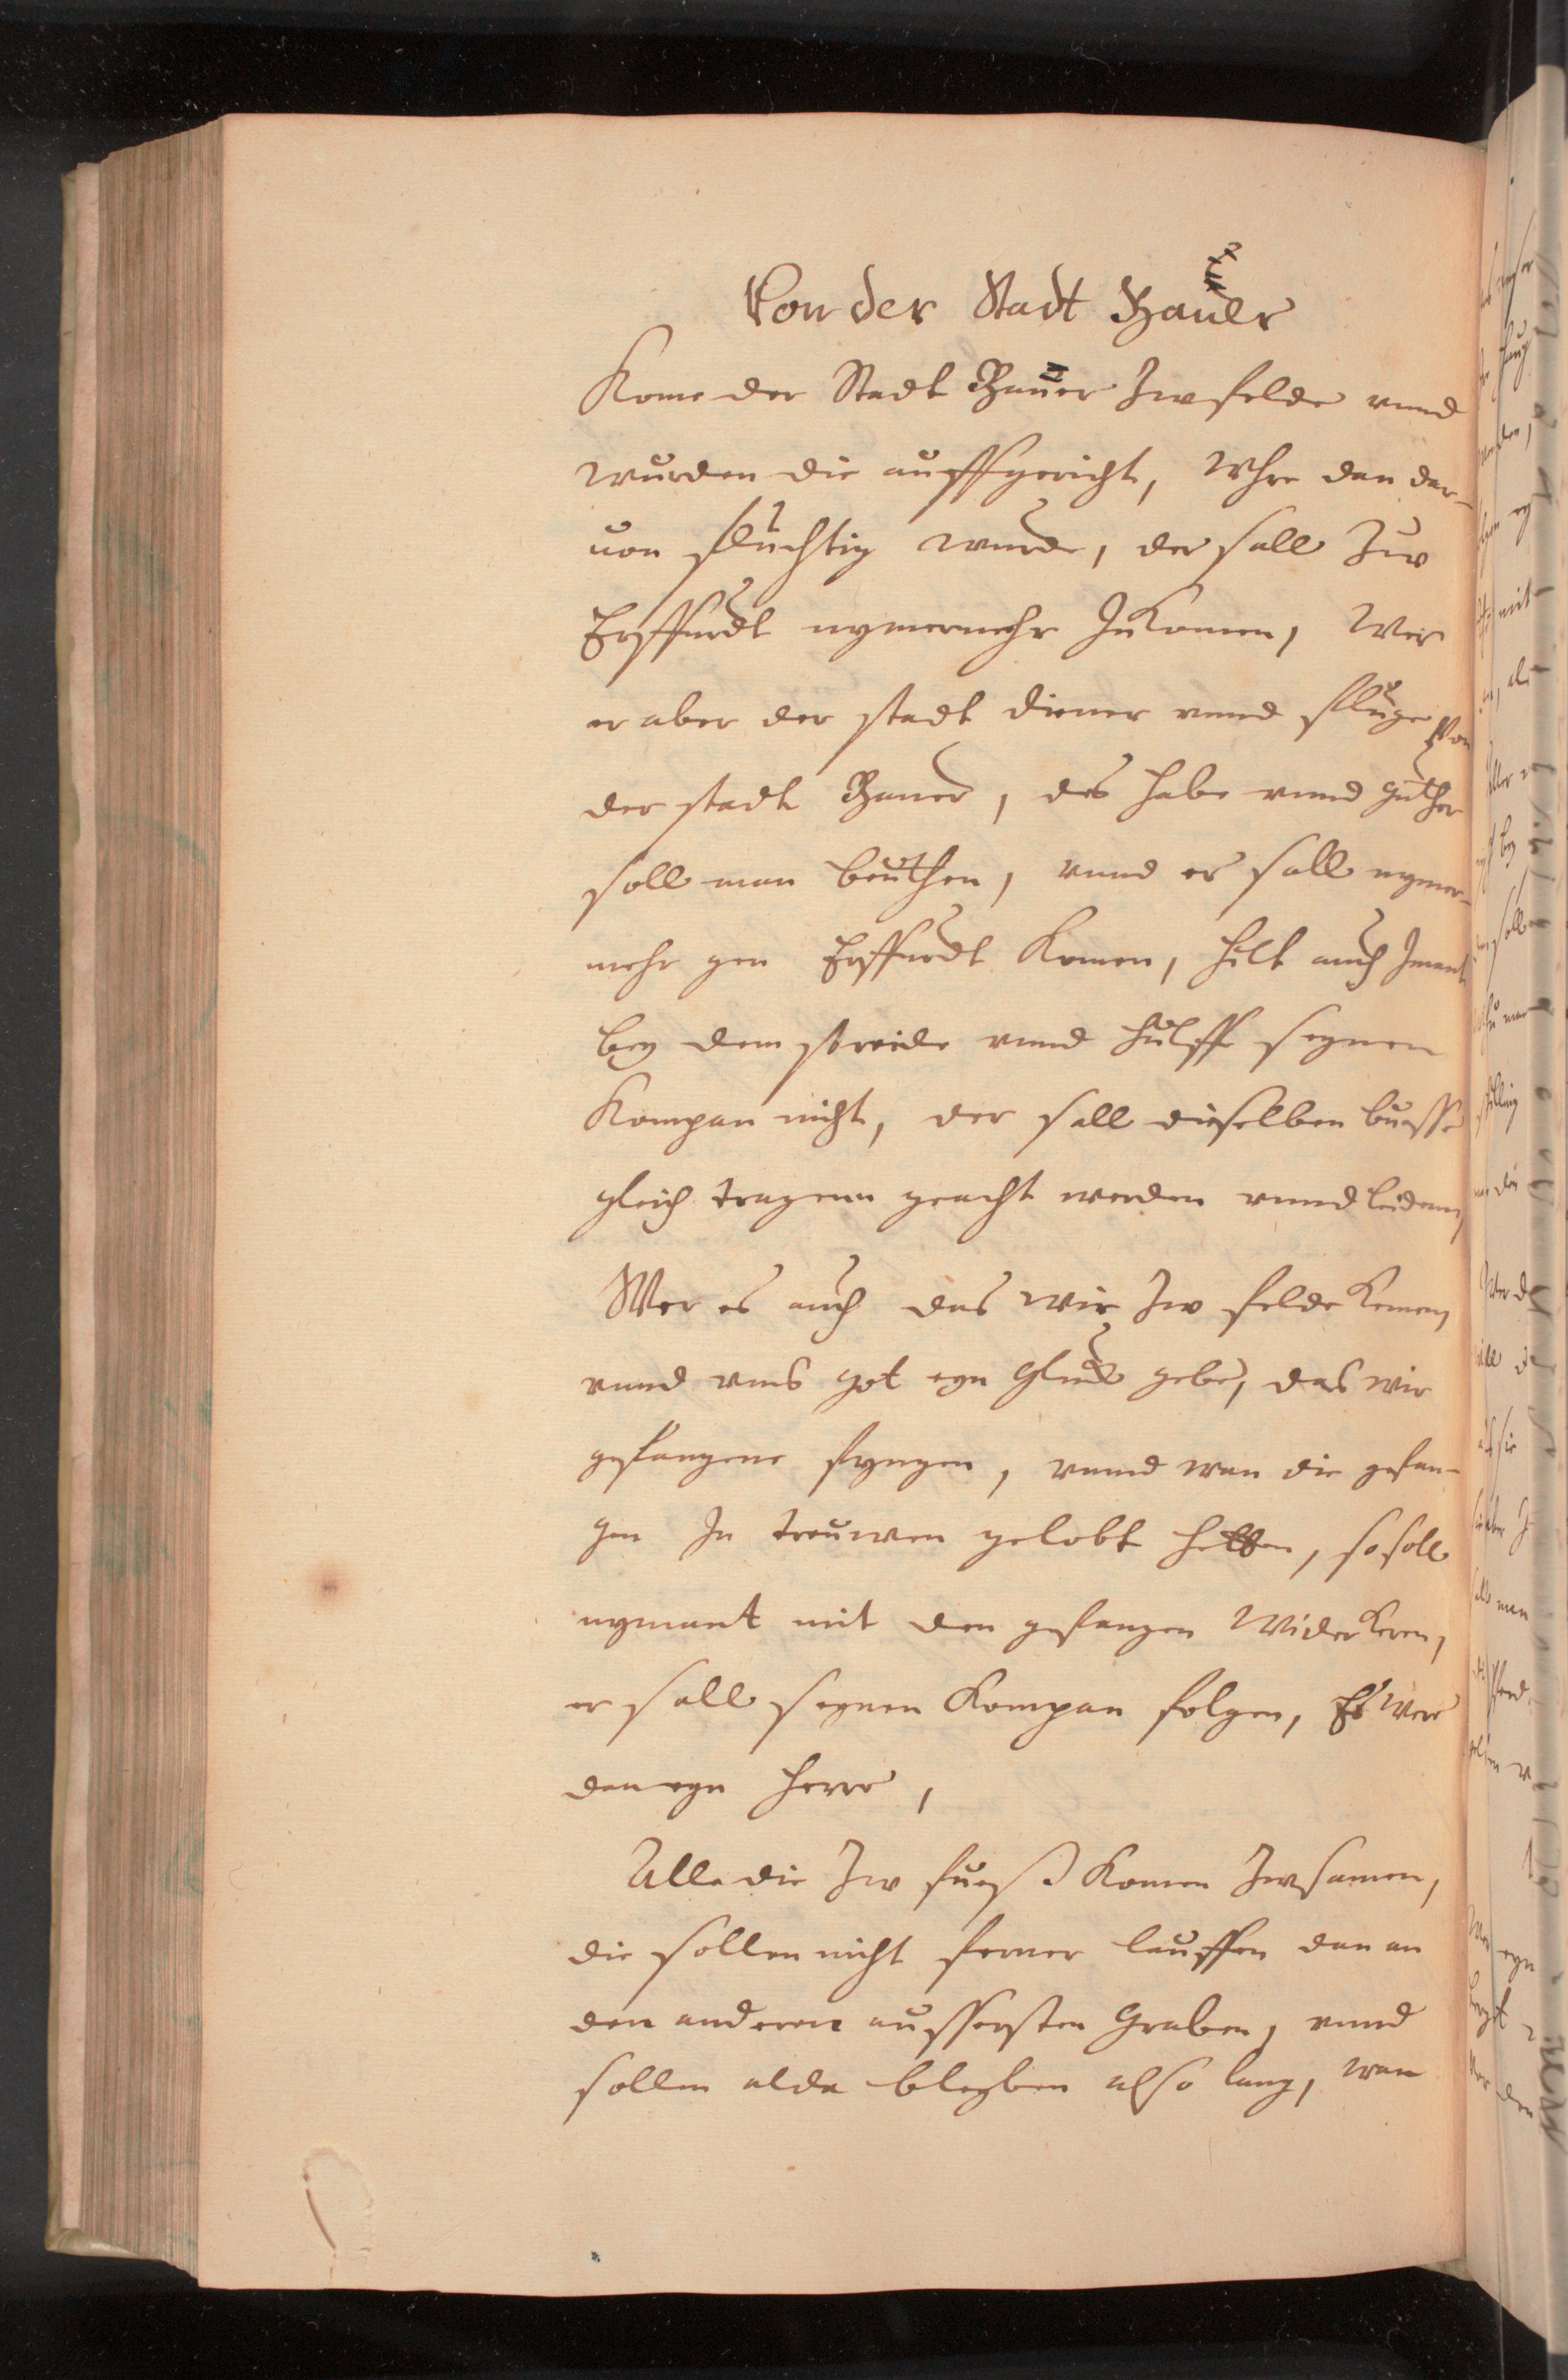 Von der Stadt Baner
Kome der Stadt Baner Zw felde vnnd
wurden die auffgericht, Wehre dan dar-
uon fluchtig wurde, der sall Zw
Erffurdt nymermehr In Komen, Wer
er aber der stadt diener vnnd fluge Von
der stadt Baner, des habe vnnd guther
soll man beuthen, vnnd er sall nymer-
mehr gen Erffurdt komen, hilt auch Jmant
bey dem streide vnnd hulffe seynen
Kompan nicht, der sall dieselben busse
gleich tragenn geacht werden vnnd leidenn,
Wer es auch das wir Zw felde kemen,
vnnd vns got eyn gluck gebe, das wir
gefangene fyngen, vnnd wan die gefan-
gen In treuwen gelobt hetten, so soll
nymant mit den gefangen Widerkeren,
er sall seynen Kompan folgen, Es were
dan eyn herre,
Alle die Zw fuesz Komen Zwsamen,
die sollen nicht ferner lauffen dan an
den anderen aussersten Graben, vnnd
sollen alda bleyben also lang, wan